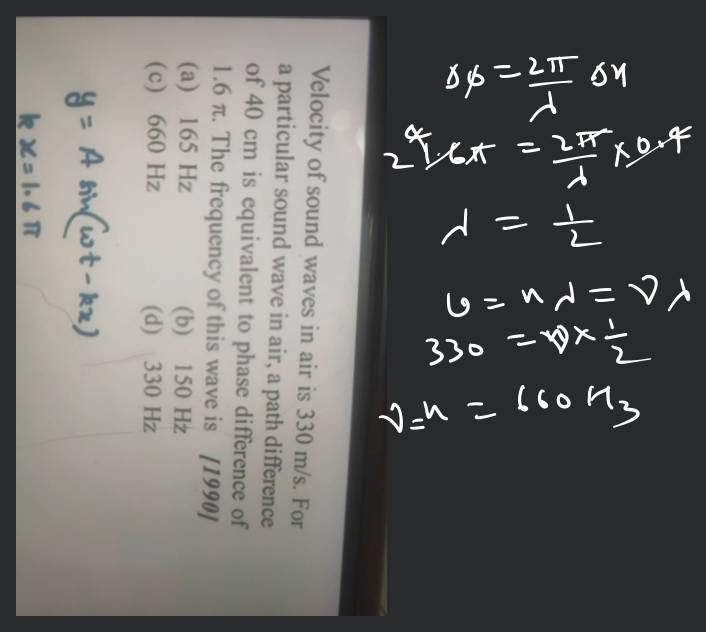 Velocity of sound waves in air is 330 m/s. For
a particular sound wave in air, a path difference
of 40 cm is equivalent to phase difference of
1.6 π. The frequency of this wave is [1990]
(a) 165 Hz (b) 150 Hz
(c) 660 Hz (d) 330 Hz
y = A sin(ωt - kx)
kx = 1.6 π
Δφ = 2π/λ Δx
1.6π = 2π/λ × 0.4
λ = 1/2
υ = nλ = νλ
330 = ν × 1/2
ν = n = 660 Hz